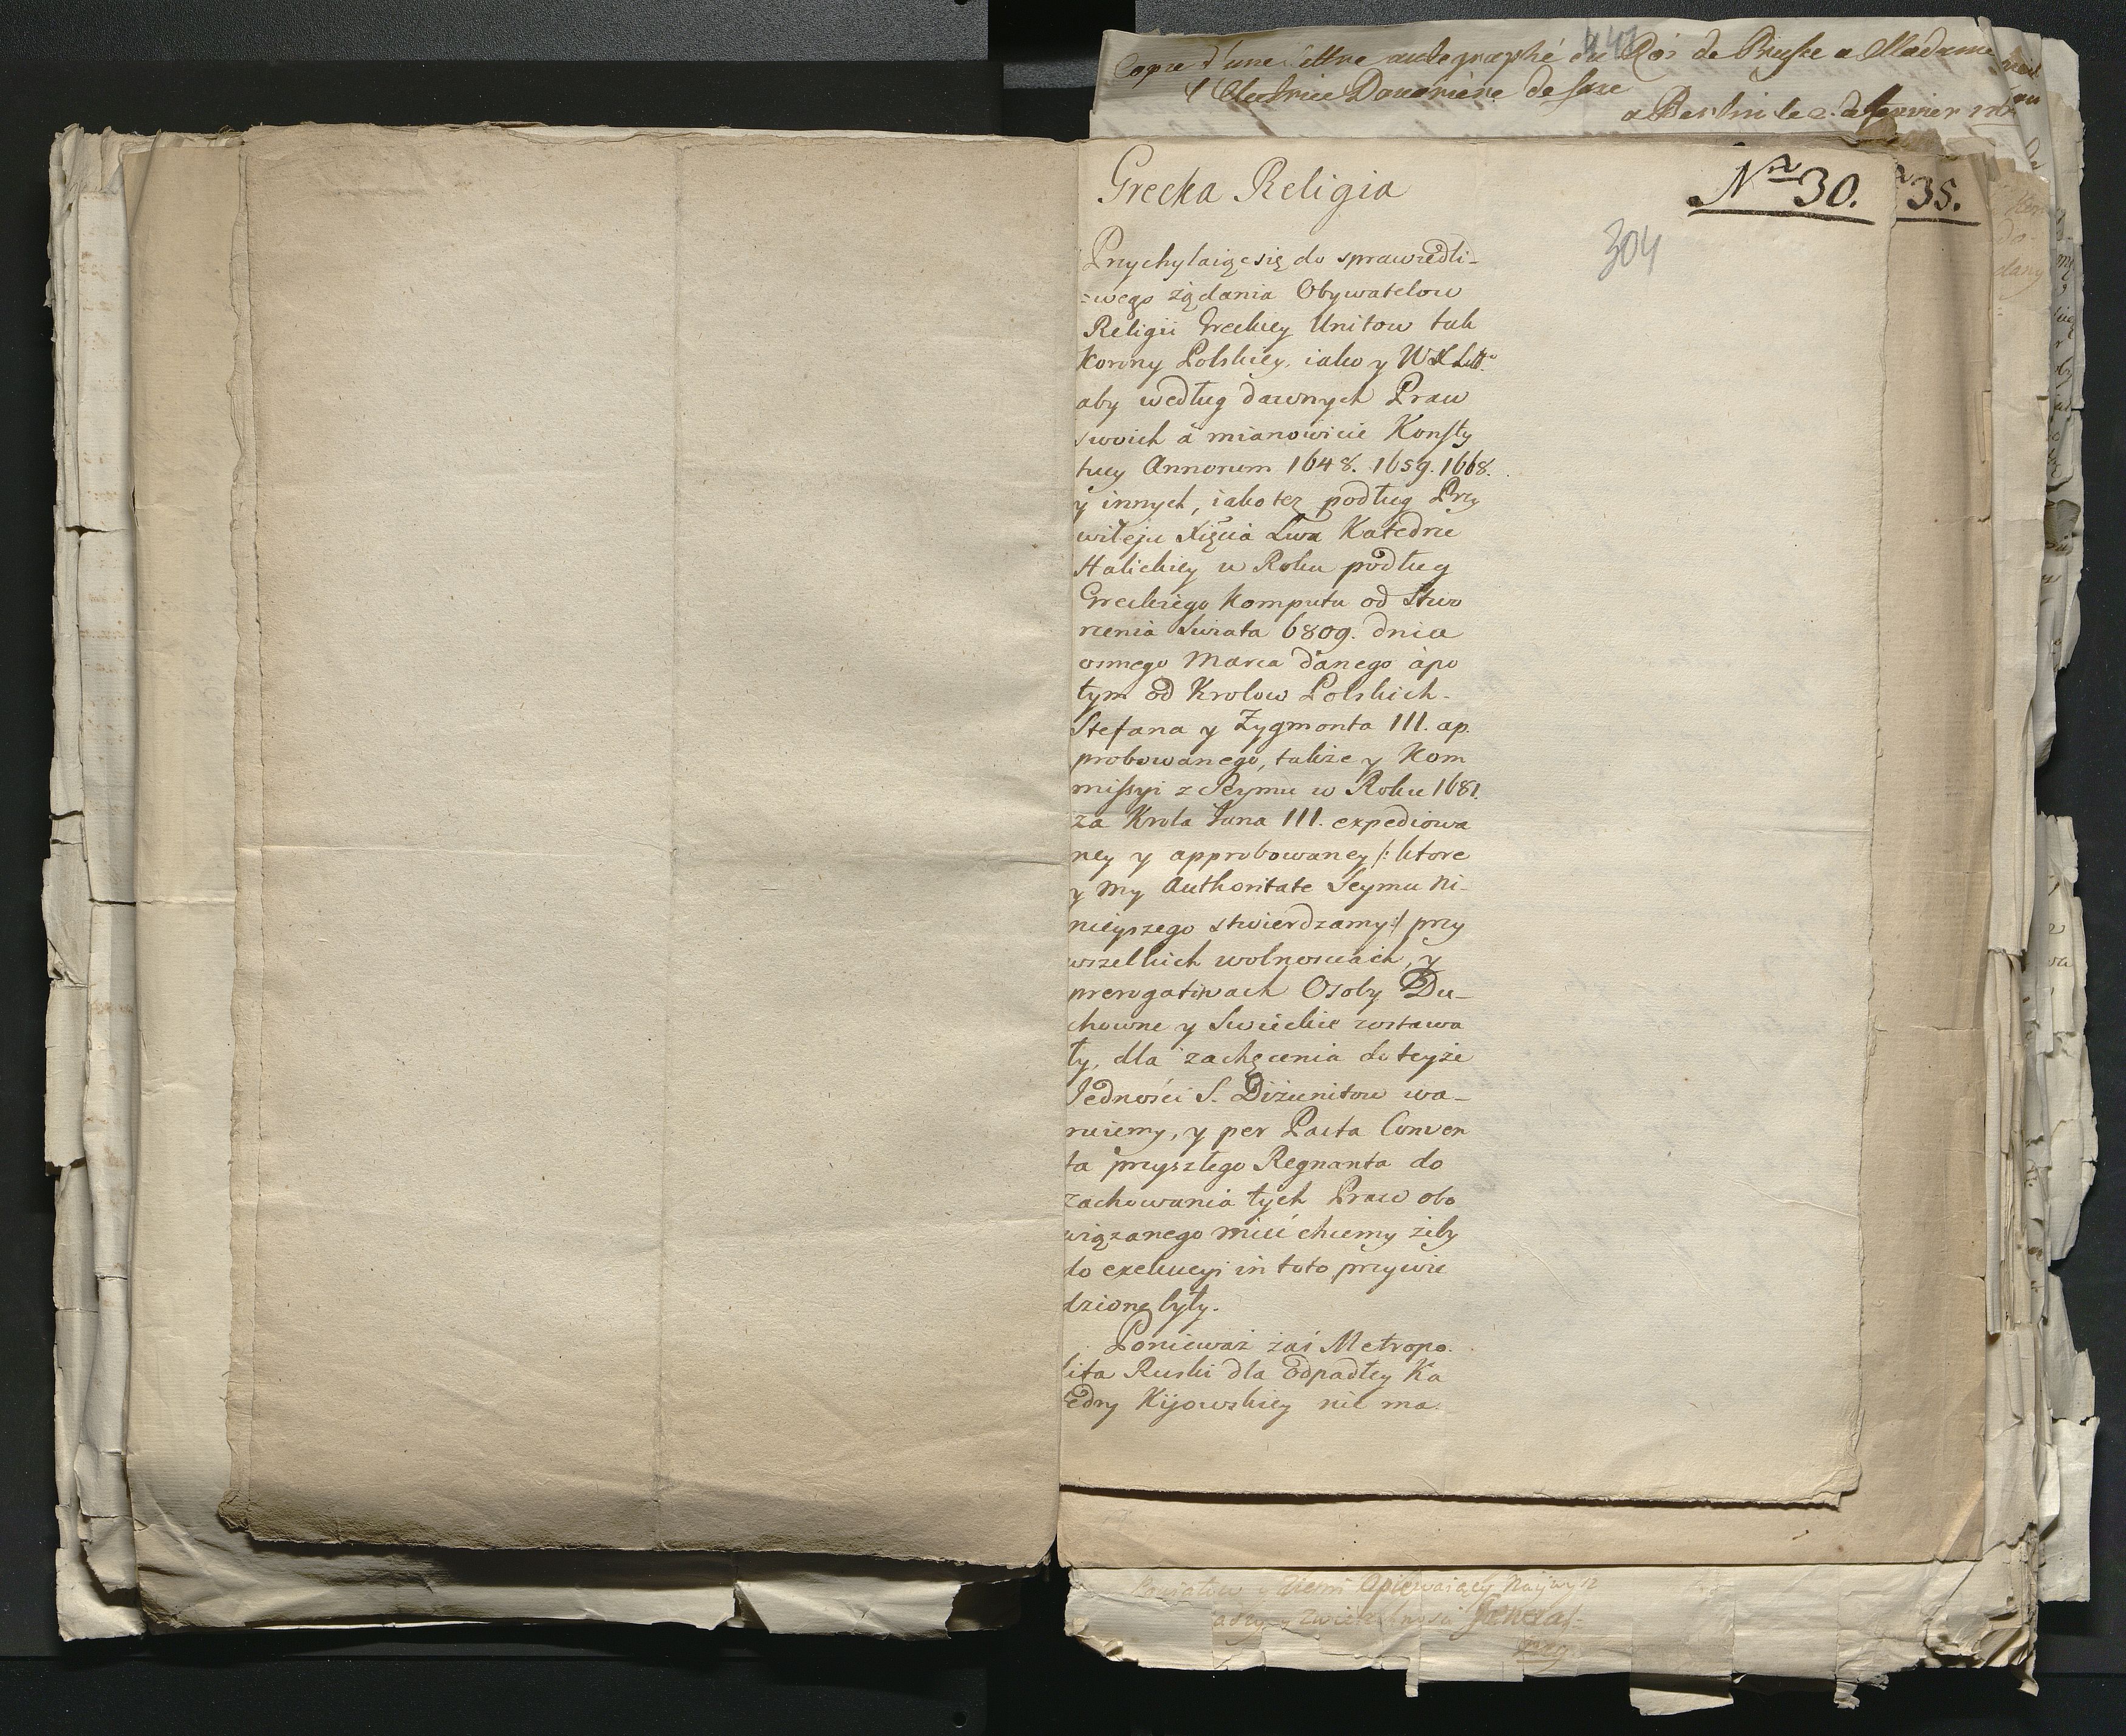 Copie d'une lettre autographé du Roi de Prusse a Madame
l'Electrice Douariere de Saxe
a Berlin le 2. de fevrier
Grecka Religia
Nro 30.
35.
304
Przychylaiąc się do sprawiedli-
=wego żądania Obywatelow
Religii Greckiey Unitow tak
Korony Polskiey, iako y W X Litt:
aby według dawnych Praw
swoich á mianowicie Konsty
tucy Annorum 1648. 1659. 1668.
y innych, iako tez podług Przy
wileju Xięcia Lwa Katedrze
Halickiey w Roku podług
Greckiego Komputu od Stwo
rzenia Swiata 6809. dnia
osmego Marca danego á po
tym od Krolow Polskich
Stefana y Zygmonta III. ap.
probowanego, takze y Kom
missyi z Seymu w Roku 1681.
za Krola Jana III. expediowa
ney y approbowaney /: ktore
y My Authoritate Seymu Ni-
nieyszego stwierdzamy :/ przy
wszelkich wolnosciach, y
prerogatiwach Osoby Du-
chowne y Swieckie zostawa
ły, dla zachęcenia do teyże
Jedności S. Dizunitow wa-
ruiemy, y per Pacta Conven
ta przyszłego Regnanta do
zachowania tych Praw obo
wiązanego mieć chcemy żeby
do exekucyi in toto przywie
dzione były.
Ponieważ zaś Metropo.
lita Ruski dla odpadłey Ka
edry Kijowskiey nie ma.
General-